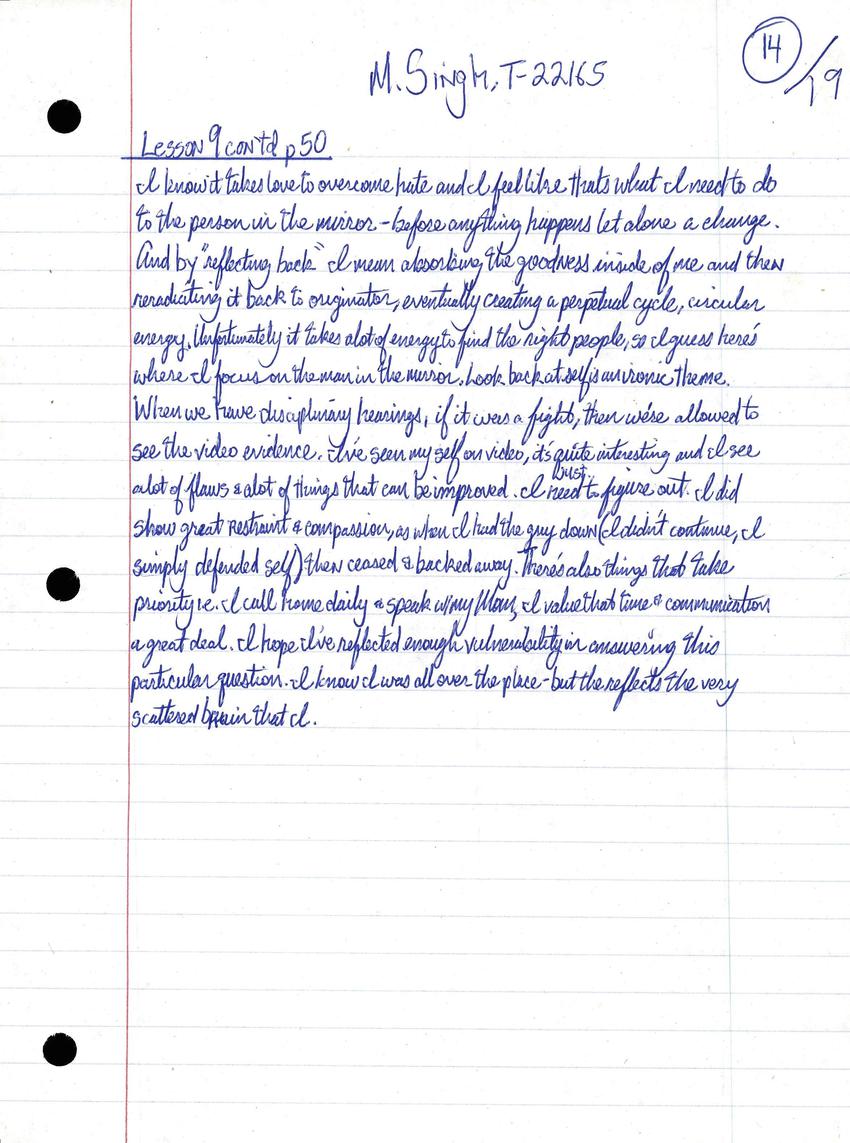 14/19
M. Singh, T-22165
Lesson 9 cont'd p 50
I know it takes love to overcome hate and I feel like thats what I need to do
to the person in the mirror - before anything happens let alone a change.
And by "reflecting back" I mean absorbing the goodness inside of me and then
reradiating it back to originator, eventually creating a perpetual cycle, circular
energy. Unfortunately it takes alot of energy to find the right people, so I guess here's
where I focus on the man in the mirror. Look back at self is an ironic theme.
When we have disciplinary hearings, if it was a fight, then we're allowed to
see the video evidence. I've seen my self on video, it's quite interesting and I see
alot of flaws & alot of things that can be improved. I just need to figure out. I did
show great restraint & compassion, as when I had the guy down (I didn't continue, I
simply defended self) then ceased & backed away. There's also things that take
priority i.e. I call home daily & speak w/my Mom, I value that time & communication
a great deal. I hope I've reflected enough vulnerability in answering this
particular question. I know I was all over the place - but the reflects the very
scattered brain that I.